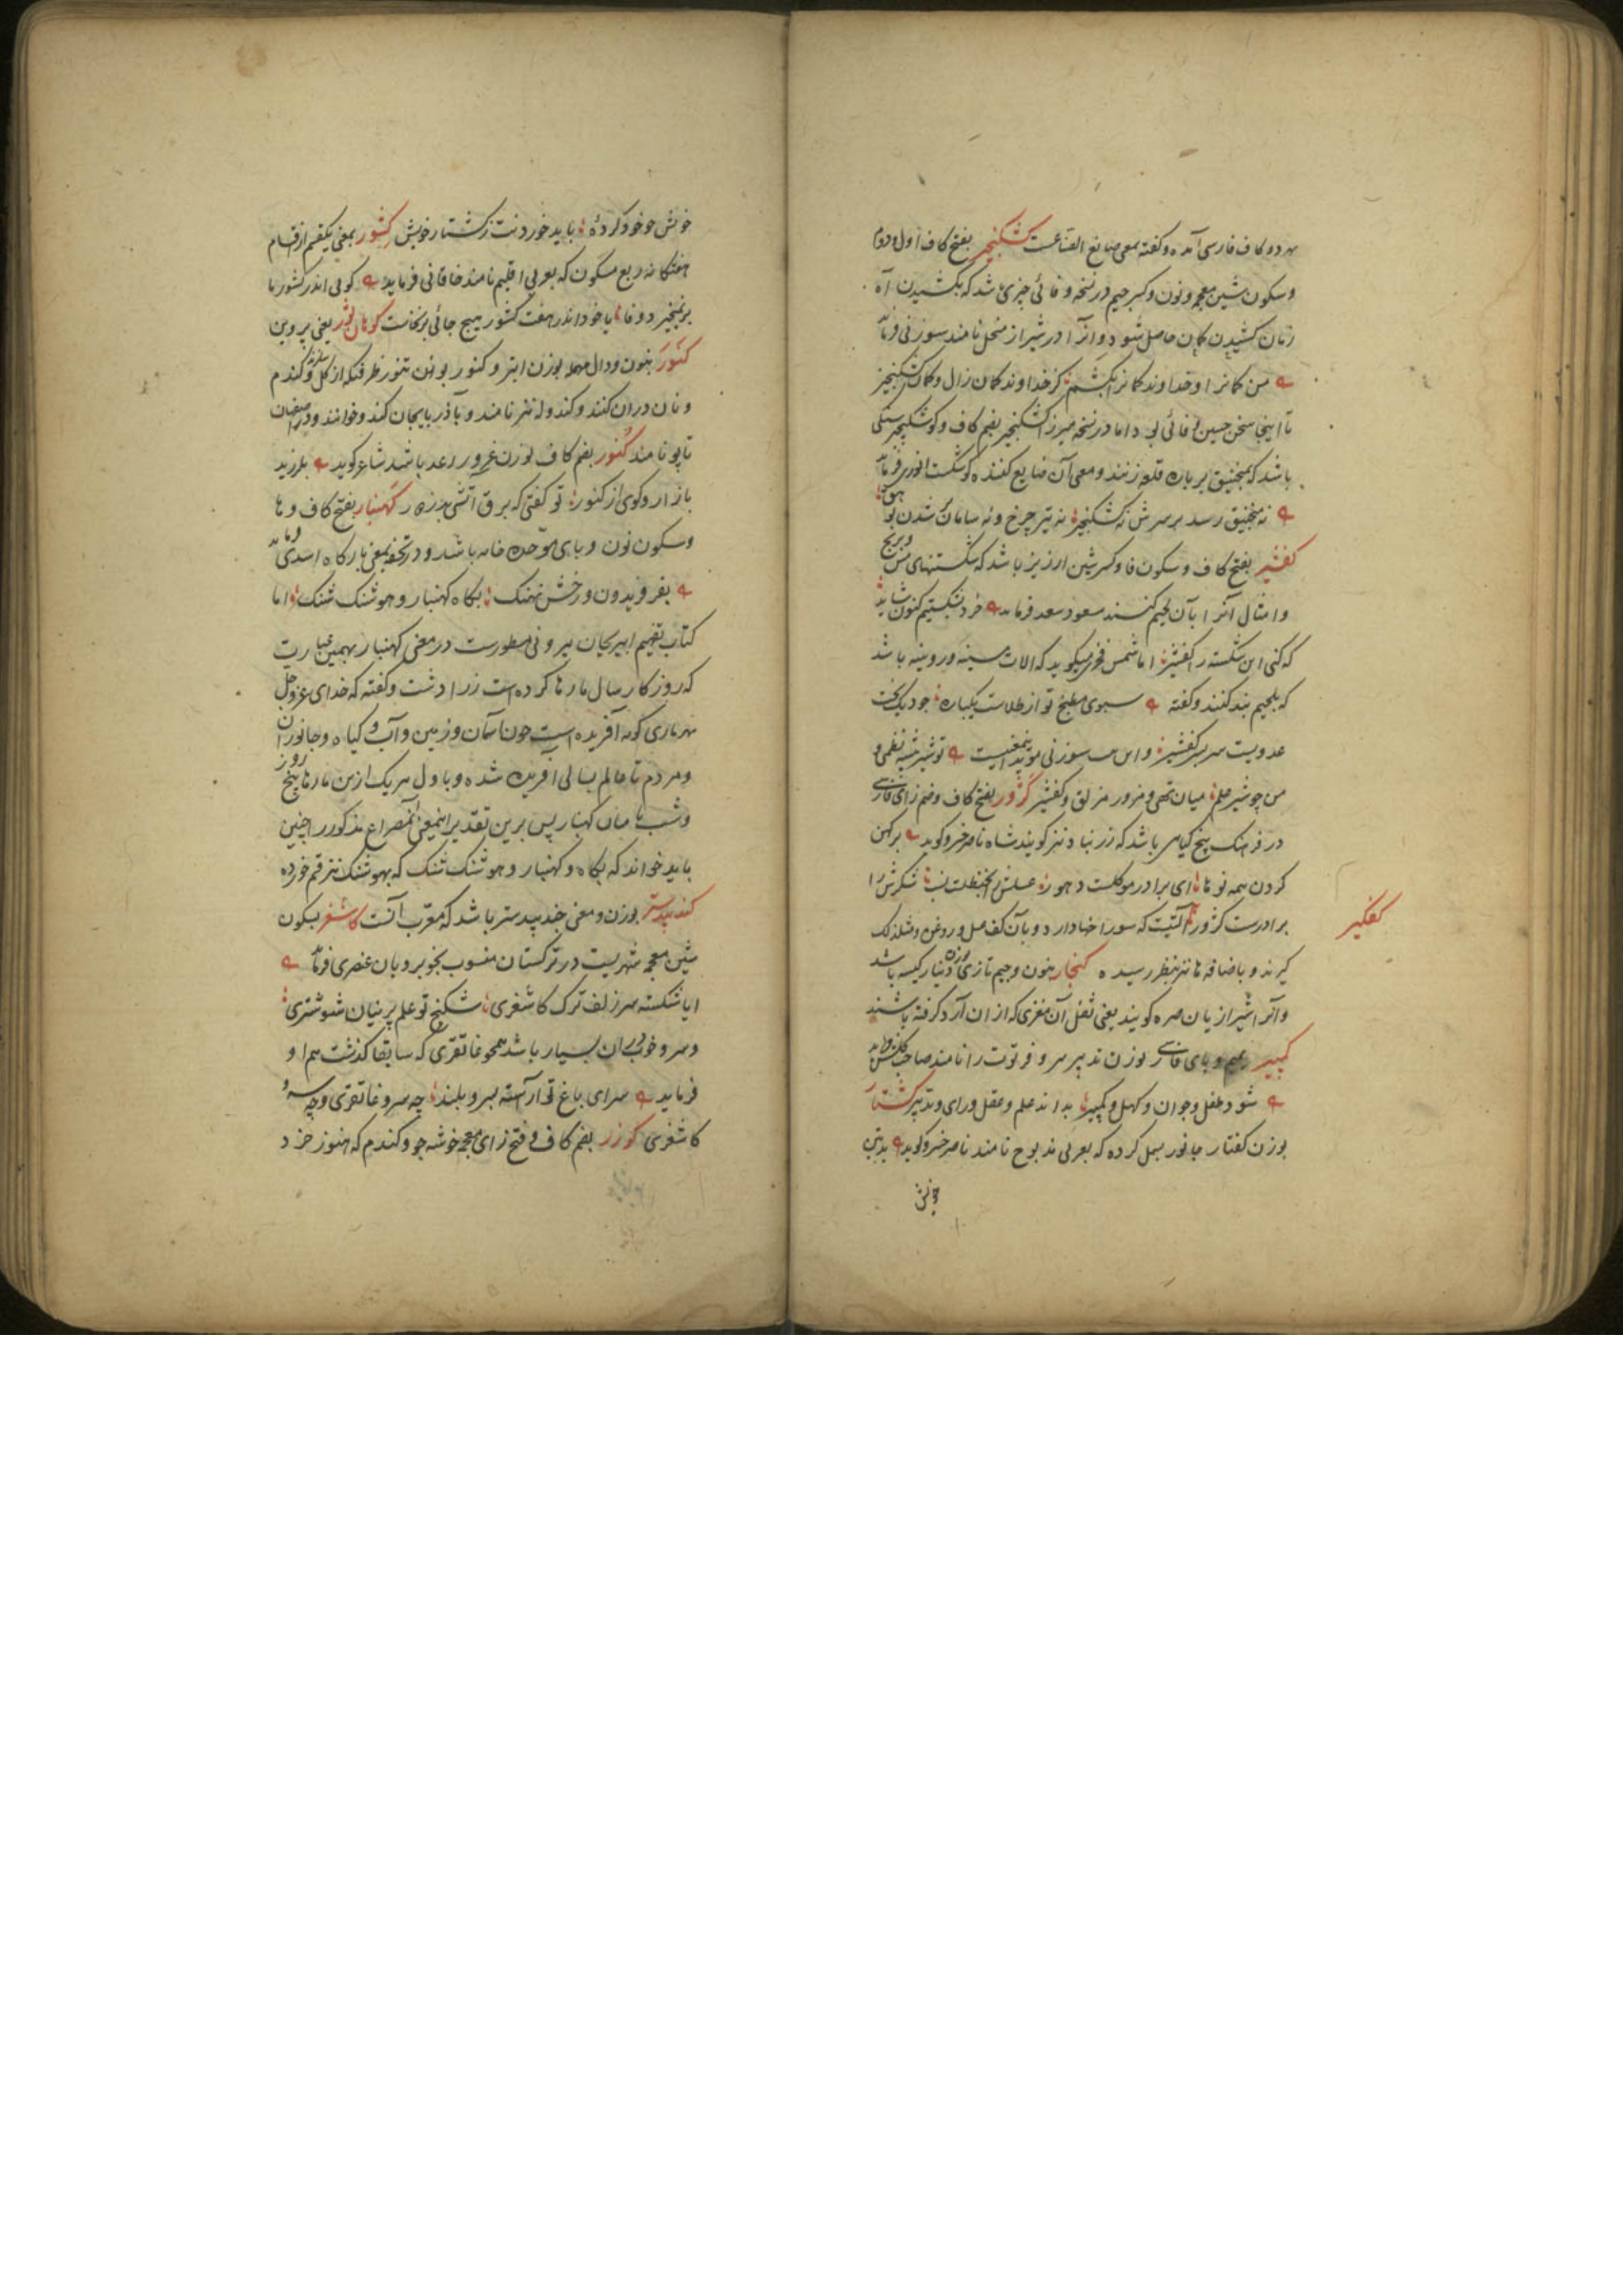 هر دو کاف فارسی آمده و گفته بمعنی صانع الصناعت کشکنجیر بفتح کاف اول و دوم
و سکون شین معجمه و نون و کسر جیم در نسخه وفائی چیزی باشد که بکشیدن آن
زنان کشیدن کمان حاصل شود و آنرا در شیراز منجل نامند سوزنی فرماید
من کمانرا و خداوند کمانرا بکشم گر خداوند کمان زال و کمان کشکنجیر
تا اینجا سخن حسین وفائی بود اما در نسخه میرزا کشکنجیر بضم کاف و کوشکنجیر سنگی
باشد که بمنجنیق بر باره قلعه زنند و معنی آن ضایع کننده کوشکست انوری فرماید
نه منجنیق رسد بر سرش نه کشکنجیر نه تیر چرخ و نه سامان شدن بوهق
کفشیر بفتح کاف و سکون فا و کسر شین ارزیز باشد که شکستهای مس و برنج
و امثال آنرا بآن لحیم کنند مسعود سعد فرماید خرد بشکستیم کنون شاید
که کنی این شکسته را کفشیر اما شمس فخری میگوید که آلات مسینه و رویینه باشد
که بلحیم بند کنند و گفته سبوی مطبخ تو از طلاست یکباره چو دیک بخت
عدویت سربسر کفشیر و این بیت سوزنی مؤید اینمعنیست تو شیر بیشه نظمی و
من چو شیر علم میان تهی و مزور مزلق و کفشیر کژور بفتح کاف و ضم زای فارسی
در فرهنگ بیخ گیاهی باشد که زرنباد نیز گویند شاه ناصر خسرو گوید برکهن
کردن همه نوها ای برادر موکلست دهور عسلش را بحنظلست نسب شکرش را
برادرست کژور آلتیست که سوراخها دارد و بآن کف عسل و روغن و مثل ذلک
کفگیر
گیرند و باضافه ها نیز بنظر رسیده کنجار بنون و جیم تازی بوزن دینار کسبه باشد
و آنرا شیرازیان صره گویند یعنی ثفل آن مغزی که از آن آرد گرفته باشند
کمپیر بمیم و بای فارسی بوزن تدبیر پیر و فرتوت را نامند صاحب گلشن راز
شود طفل و جوان و کهل و کمپیر بداند علم و عقل و رای و تدبیر کشتار
بوزن گفتار جانور بسمل کرده که بعربی مذبوح نامند ناصر خسرو گوید بدین
خویش
خویش چو خو کرده باید خوردنت ز کشتار خویش کشور بمعنی یکقسم از اقسام
هفتگانه ربع مسکون که بعربی اقلیم نامند خاقانی فرماید گویی اندر کشور ما
بر نمیخیزد وفا یا خود اندر هفت کشور هیچ جائی برنخاست کوهان ثور یعنی پروین
کندر بنون و دال مهمله بوزن ابتر و کنور بوزن تنور ظرفیکه از گل سازند و گندم
و نان در آن کنند و کندوله نیز نامند و بآذربایجان کند و خوانند و در اصفهان
تاپو نامند کنور بضم کاف بوزن غرور رعد باشد شاعر گوید بلرزید
بازار و کوی از کنور تو گفتی که برق آتشی میزند کهنبار بفتح کاف و ها
و سکون نون و بای موحده خانه باشد و در تحفه بمعنی بارگاه اسدی فرماید
بفر فریدون و رخش نهنک بگاه کهنبار و هوشنک شنک اما
کتاب تفهیم ابوریحان بیرونی مسطورست در معنی کهنبار بهمین عبارت
که روزگار سال پارها کرده است زرادشت و گفته که خدای عز و جل
بهر پاری گونه آفریده است چون آسمان و زمین و آب و گیاه و جانوران
و مردم تا عالم بسالی آفریده شده و باول هر یک ازین پارها پنج روز
و شب نامشان کهنبار پس برین تقدیر اینمعنی آنمصراع مذکور را چنین
باید خواند که بگاه و کهنبار و هوشنک شنک که بهوشنک نیز قم خورده
کندبیدستر بوزن و معنی جندبیدستر باشد که معرب آنست کاشغر بسکون
شین معجمه شهریست در ترکستان منسوب بخوبرویان عنصری فرماید
ایا شکسته سر زلف ترک کاشغری شکنج تو علم پرنیان شوشتری
و سرو خوب در آن بسیار باشد همچو غاتفری که سابقا گذشت هم او
فرماید سرای باغ تو آراسته بسرو بلند چه سرو غاتفری و چه سرو
کاشغری کوزر بضم کاف و فتح زای معجمه خوشه جو و گندم که هنوز خرد